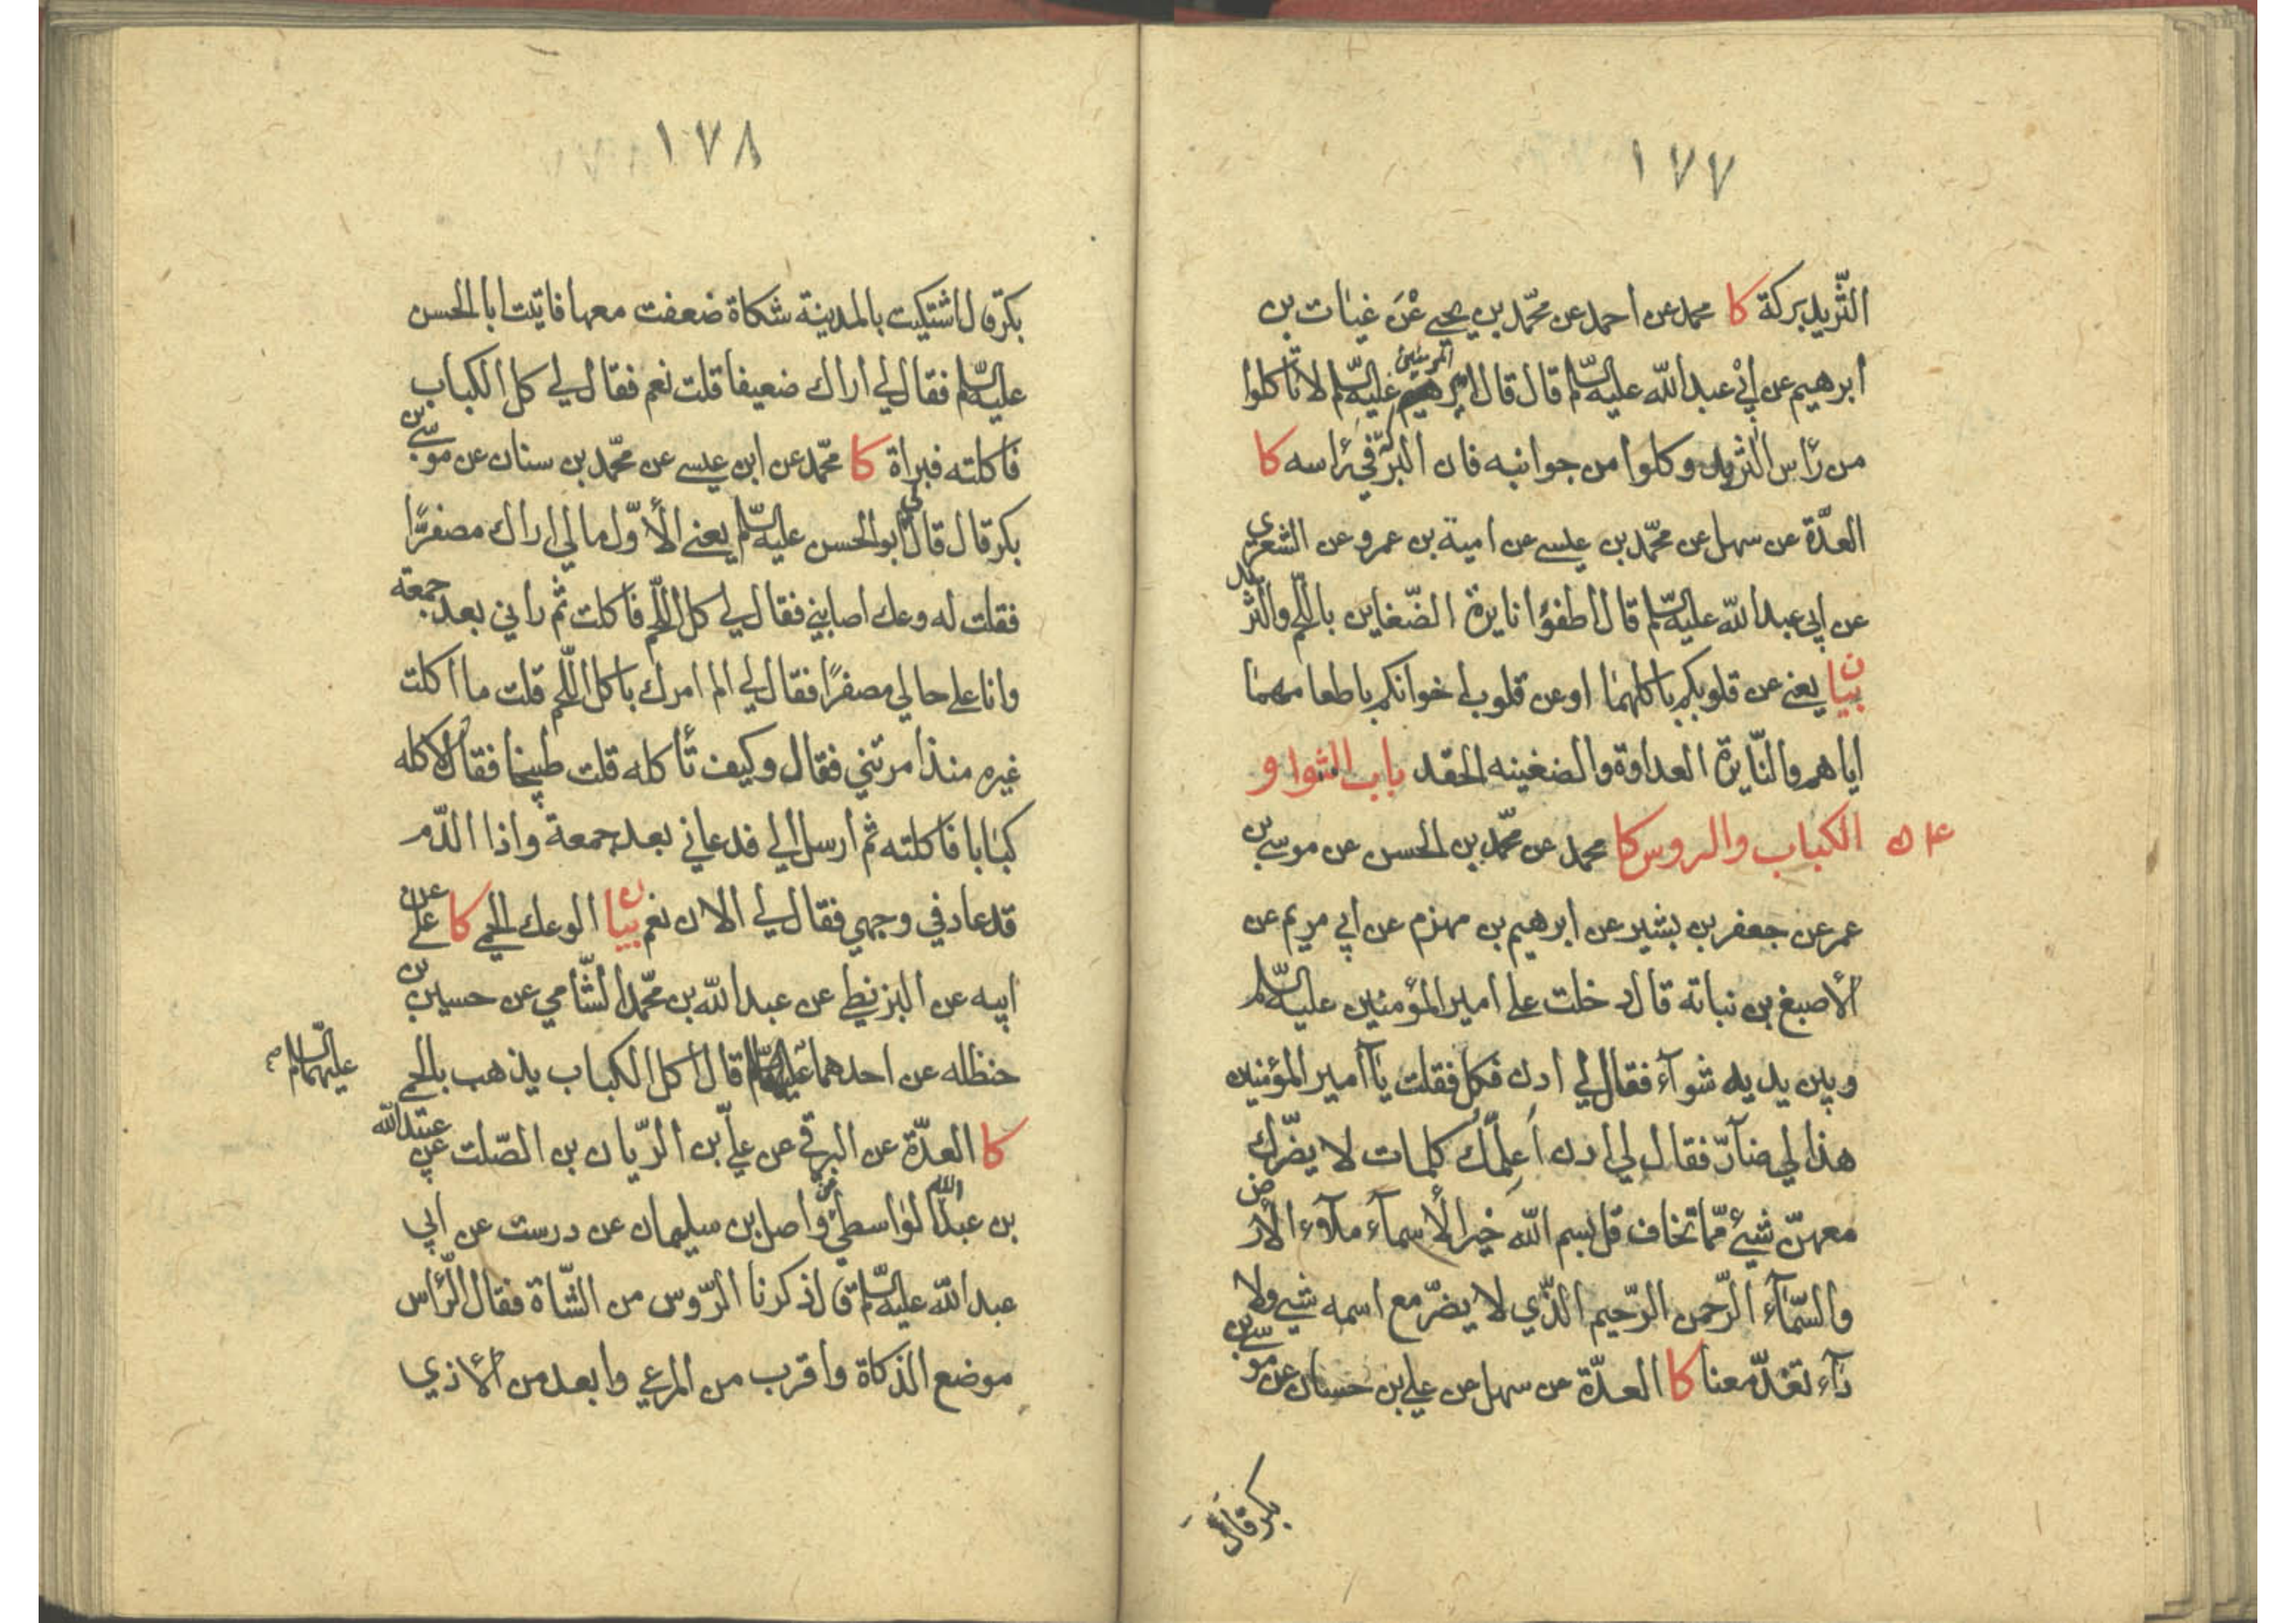 ١٧٧
الثّريد بركة كا محمد عن احمد عن محمّد بن يحيى عن غياث بن
ابرهيم عن ابي عبد الله عليه السّلم قال قال امير المؤمنين عليه السّلم لا تأكلوا
من رأس الثريد وكلوا من جوانبه فان البركة في رأسه كا
العدّة عن سهل عن محمّد بن عيسى عن امية بن عمرو عن الشعيري
عن ابي عبد الله عليه السّلم قال اطفؤا نايرة الضّغاين باللّحم والثّريد
بيان يعني عن قلوبكم باكلهما او عن قلوب اخوانكم باطعامهما
اياهم والنّايرة العداوة والضغينه الحقد باب الشوا و
الكباب والروس كا محمد عن محمّد بن الحسن عن موسى بن
عمر عن جعفر بن بشير عن ابرهيم بن مهزم عن ابي مريم عن
الأصبغ بن نباته قال دخلت على امير المؤمنين عليه السّلم
وبين يديه شوآء فقال لي ادن فكل فقلت يا أمير المؤمنين
هذا لي ضآرّ فقال لي ادن أعلّمك كلمات لا يضّرك
معهنّ شيئ ممّا تخاف قل بسم الله خير الأسمآء ملاء الأرض
والسّمآء الرّحمن الرّحيم الّذي لا يضرّ مع اسمه شيئ ولا
دآء تغدّ معنا كا العدّة عن سهل عن علي بن حسان عن موسى بن
بكر قال
١٧٨
بكر قال اشتكيت بالمدينة شكاة ضعفت معها فاتيت ابا الحسن
عليه السّلم فقال لي اراك ضعيفا قلت نعم فقال لي كل الكباب
فاكلته فبراة كا محمّد عن ابن عيسى عن محمّد بن سنان عن موسى بن
بكر قال قال لي أبو الحسن عليه السّلم يعني الأوّل ما لي اراك مصفرًّا
فقلت له وعك اصابني فقال لي كل اللّحم فاكلت ثم راني بعد جمعة
وانا على حالي مصفرًا فقال لي الم امرك باكل اللّحم قلت ما اكلت
غيره منذ امرتني فقال وكيف تأكله قلت طبيخا فقال لا كله
كبابا فاكلته ثم أرسل الي فدعاني بعد جمعة واذا الدّم
قد عاد في وجهي فقال لي الان نعم بيان الوعك الحمى كا علي عن
ابيه عن البزنطي عن عبد الله بن محمّد الشّامي عن حسين بن
حنظله عن احدهما عليهما السّلام قال اكل الكباب يذهب بالحمى
عليهما السّلام
كا العدّة عن البرقي عن عليّ بن الرّيان بن الصّلت عن عبيد الله
بن عبد الله الواسطي عن واصل بن سليمان عن درست عن ابي
عبد الله عليه السّلم قال ذكرنا الرّوس من الشّاة فقال الرّأس
موضع الذكاة وأقرب من المرعى وابعد من الأذي